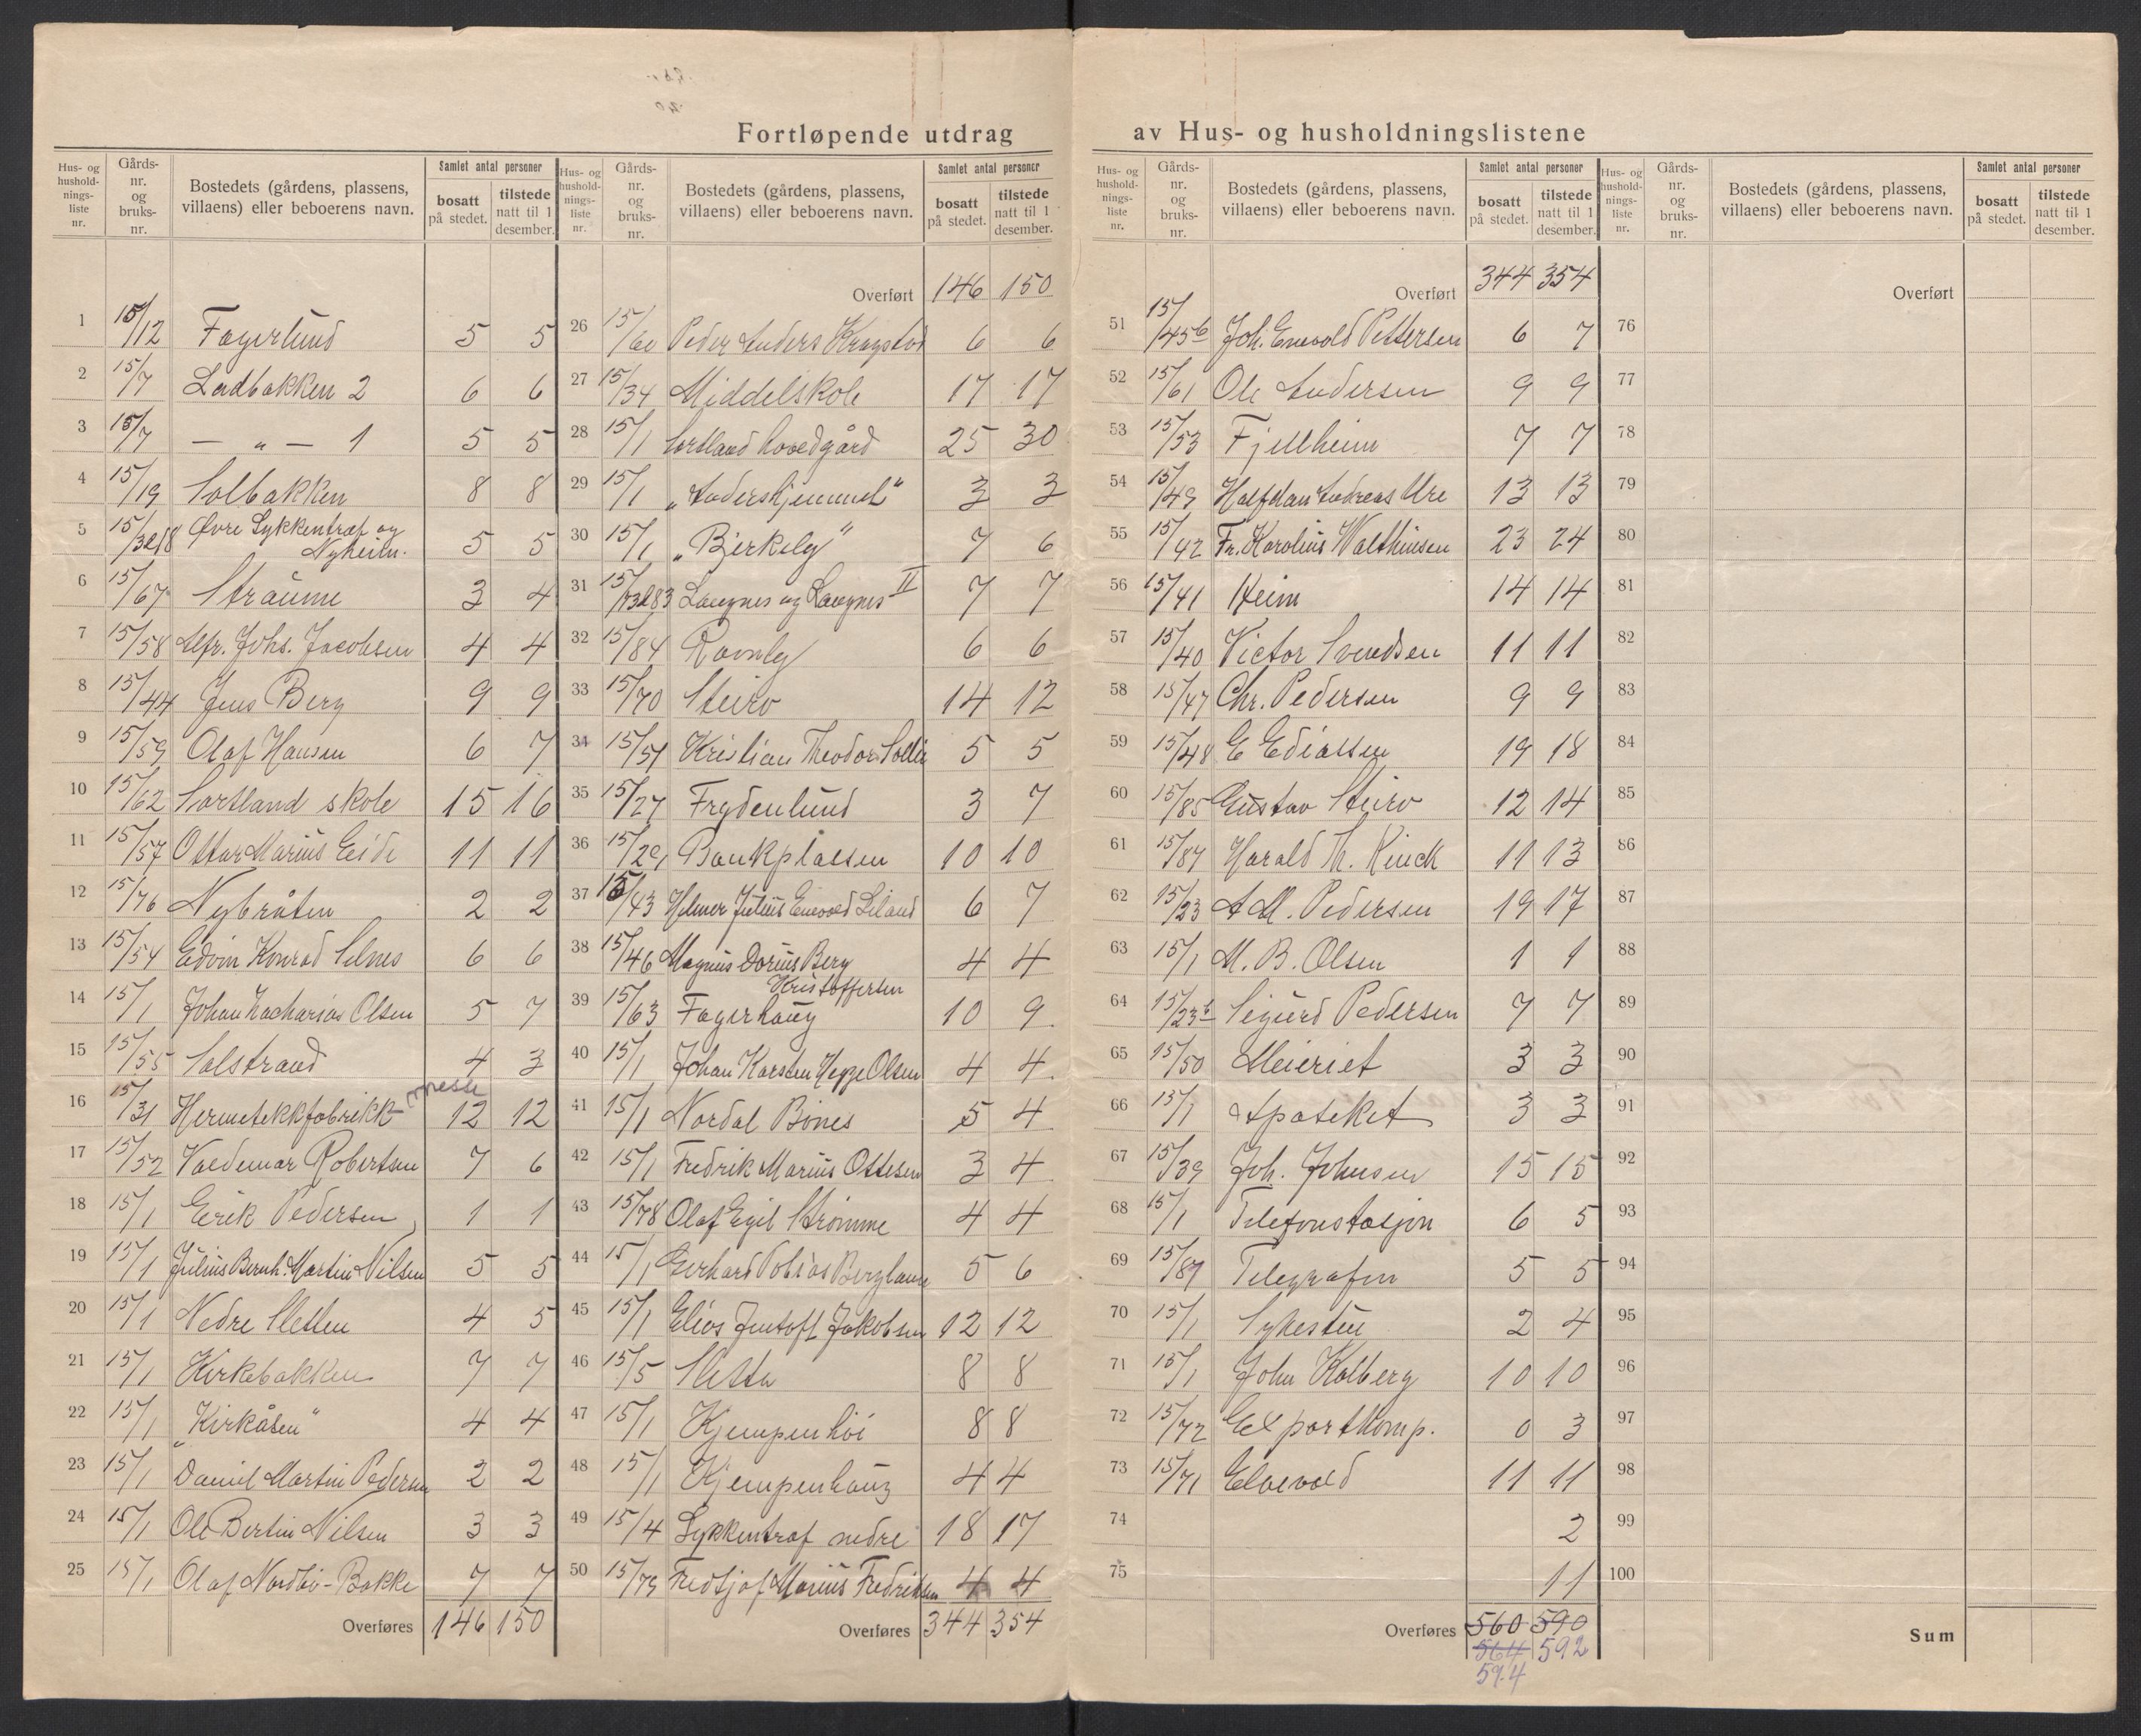 Fortløpende utdrag av Hus- og husholdningslistene
Hus- og husholdnings-liste nr. | Gårds-nr. og bruks-nr. | Bostedets (gårdens, plassens, villaens) eller beboerens navn. | Samlet antal personer: bosatt på stedet. | tilstede natt til 1 desember.
1 15/12 Fagerlund 5 5
2 15/7 Ladbakken 2 6 6
3 15/7 — „ — 1 5 5
4 15/19 Solbakken 8 8
5 15/3&18 Øvre Lykkentræf og Nyheim. 5 5
6 15/67 Straume 3 4
7 15/58 Alfr. Johs. Jacobsen 4 4
8 15/44 Jens Berg 9 9
9 15/59 Olaf Hansen 6 7
10 15/62 Sortland skole 15 16
11 15/57 Ottar Marius Eide 11 11
12 15/76 Nybråten 2 2
13 15/54 Edvin Konrad Selnes 6 6
14 15/1 Johan Zacharias Olsen 5 7
15 15/55 Solstrand 4 3
16 15/31 Hermetikkfabrikk messe 12 12
17 15/52 Valdemar Robertsen 7 6
18 15/1 Erik Pedersen 1 1
19 15/1 Julius Bernh. Martin Nilsen 5 5
20 15/1 Nedre Sletten 4 5
21 15/1 Kirkebakken 7 7
22 15/1 „Kirkåsen" 4 4
23 15/1 Daniel Martin Pedersen 2 2
24 15/1 Ole Bertin Nilsen 3 3
25 15/1 Olaf Nordbö-Bakke 7 7
Overføres 146 150
Hus- og husholdnings-liste nr. | Gårds-nr. og bruks-nr. | Bostedets (gårdens, plassens, villaens) eller beboerens navn. | Samlet antal personer: bosatt på stedet. | tilstede natt til 1 desember.
Overført 146 150
26 15/60 Peder Anders Kragstad 6 6
27 15/34 Middelskole 17 17
28 15/1 Sortland hovedgård 25 30
29 15/1 „Andershjemmet" 3 3
30 15/1 „Bjerkely" 7 6
31 15/73&83 Langnes og Langnes II 7 7
32 15/84 Ravnly 6 6
33 15/70 Steiro 14 12
34 15/51 Kristian Theodor Sollie 5 5
35 15/27 Frydenlund 3 7
36 15/29 Bankplassen 10 10
37 15/43 Helmer Julius Enevold Liland 6 7
38 15/46 Magnus Dorius Berg Kristoffersen 4 4
39 15/63 Fagerhaug 10 9
40 15/1 Johan Karsten Heppe Olsen 4 4
41 15/1 Nordal Bönes 5 4
42 15/1 Fredrik Marius Ottesen 3 4
43 15/78 Olaf Egil Strömme 4 4
44 15/1 Gerhard Tobias Bergland 5 6
45 15/1 Elias Jentoft Jakobsen 12 12
46 15/5 Sletta 8 8
47 15/1 Kjempenhöi 8 8
48 15/1 Kjempenhaug 4 4
49 15/4 Lykkentræf nedre 18 17
50 15/79 Fredtjof Marius Fredriksen 4 4
Overføres 344 354
Hus- og husholdnings-liste nr. | Gårds-nr. og bruks-nr. | Bostedets (gårdens, plassens, villaens) eller beboerens navn. | Samlet antal personer: bosatt på stedet. | tilstede natt til 1 desember.
Overført 344 354
51 15/45b Joh. Enevold Pettersen 6 7
52 15/61 Ole Andersen 9 9
53 15/53 Fjellheim 7 7
54 15/49 Halfdan Andreas Ure 13 13
55 15/42 Fr. Karolius Walthinsen 23 24
56 15/41 Heim 14 14
57 15/40 Victor Svendsen 11 11
58 15/47 Chr. Pedersen 9 9
59 15/48 E Ediassen 19 18
60 15/85 Gustav Steiro 12 14
61 15/87 Harald Th. Kinck 11 13
62 15/23 A M. Pedersen 19 17
63 15/1 M. B. Olsen 1 1
64 15/23b Sigurd Pedersen 7 7
65 15/50 Meieriet 3 3
66 15/1 Apoteket 3 3
67 15/39 Joh. Johnsen 15 15
68 15/1 Telefonstasjon 6 5
69 15/87 Telegrafen 5 5
70 15/1 Sykestua 2 4
71 15/1 John Kolberg 10 10
72 15/72 Exportkomp. 0 3
73 15/71 Elvevold 11 11
74 2
75 11
Overføres 560 590
564 592
594
Hus- og husholdnings-liste nr. | Gårds-nr. og bruks-nr. | Bostedets (gårdens, plassens, villaens) eller beboerens navn. | Samlet antal personer: bosatt på stedet. | tilstede natt til 1 desember.
Overført
76
77
78
79
80
81
82
83
84
85
86
87
88
89
90
91
92
93
94
95
96
97
98
99
100
Sum